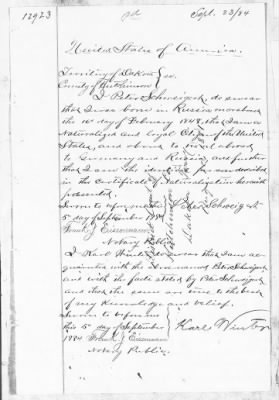 12923 pd Sept. 23/84
United States of America.
Territory of Dakota } ss.
County of Hutchinson
I Peter Schweigert, do swear
that I was born in Russia on or about
the 16 day of February 1848, that I am a
Naturalized and Loyal Citizen of the United
States, and about to travel abroad
to Germany and Russia, and further
that I am the identical person described
in the Certificate of Naturalization herewith
presented.
Sworn to before me this Peter Schweigert
5 day of September 1884
Notary Public
I Karl Winter do swear that I am ac-
quainted with the above named Peter Schweigert
and with the facts stated by Peter Schweigert
and that the same are true to the best
of my Knowledge and belief.
Sworn to before me
this 5 day of September } Karl Winter
1884
Notary Public.